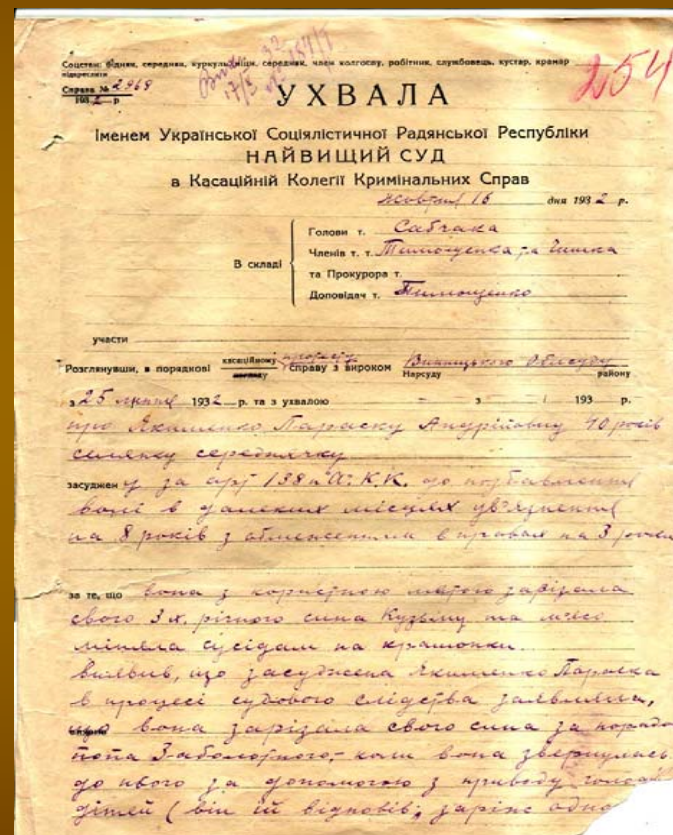 254
Соцстан: бідняк, середняк, куркуль, середняк, член колгоспу, робітник, службовець, кустар, крамар
підкреслити
Справа № 2969
1932 р
УХВАЛА
Іменем Української Соціялістичної Радянської Республіки
НАЙВИЩИЙ СУД
в Касаційній Колегії Кримінальних Справ
жовтня 16 дня 1932 р.
Голови т. Сабчака
Членів т. т. Тимощенка та
В складі
та Прокурора т.
Доповідач т. Тимощенко
участи
Розглянувши, в порядкові касаційному протесту справу з вироком Винницького Облсуду
Нарсуду району
з 25 липня 1932 р. та з ухвалою - з - 193 р.
про Якименко Параску Андріївну 40 років
селянку середнячку
засуджену за арт 138 К.К. до позбавлення
волі в далеких місцях ув'язнення
на 8 років з обмеженням в правах на 3 роки
за те, що вона з користною метою зарізала
свого 3-х річного сина Кузьму та м'ясо
міняла сусідам на крашонки.
виявив, що засуджена Якименко Параска
в процесі судового слідства заявляла,
що вона зарізала свого сина за порадою
попа З-аболотного, коли вона звернулась
до нього за допомогою з приводу
дітей (він їй відповів, заріж